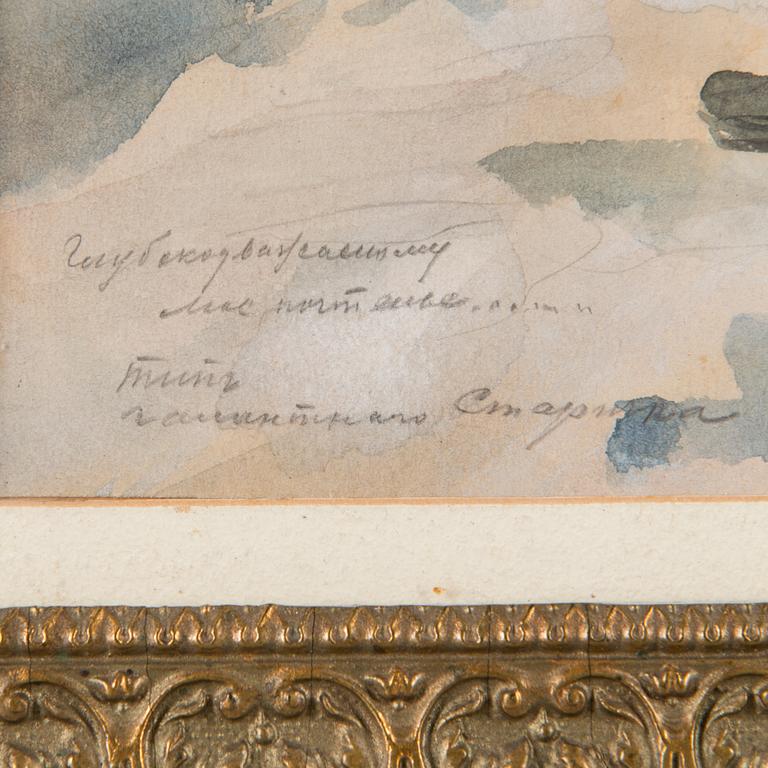 Глубокоуважаемому
мое почтенье........
Типъ
галантнаго Старичка